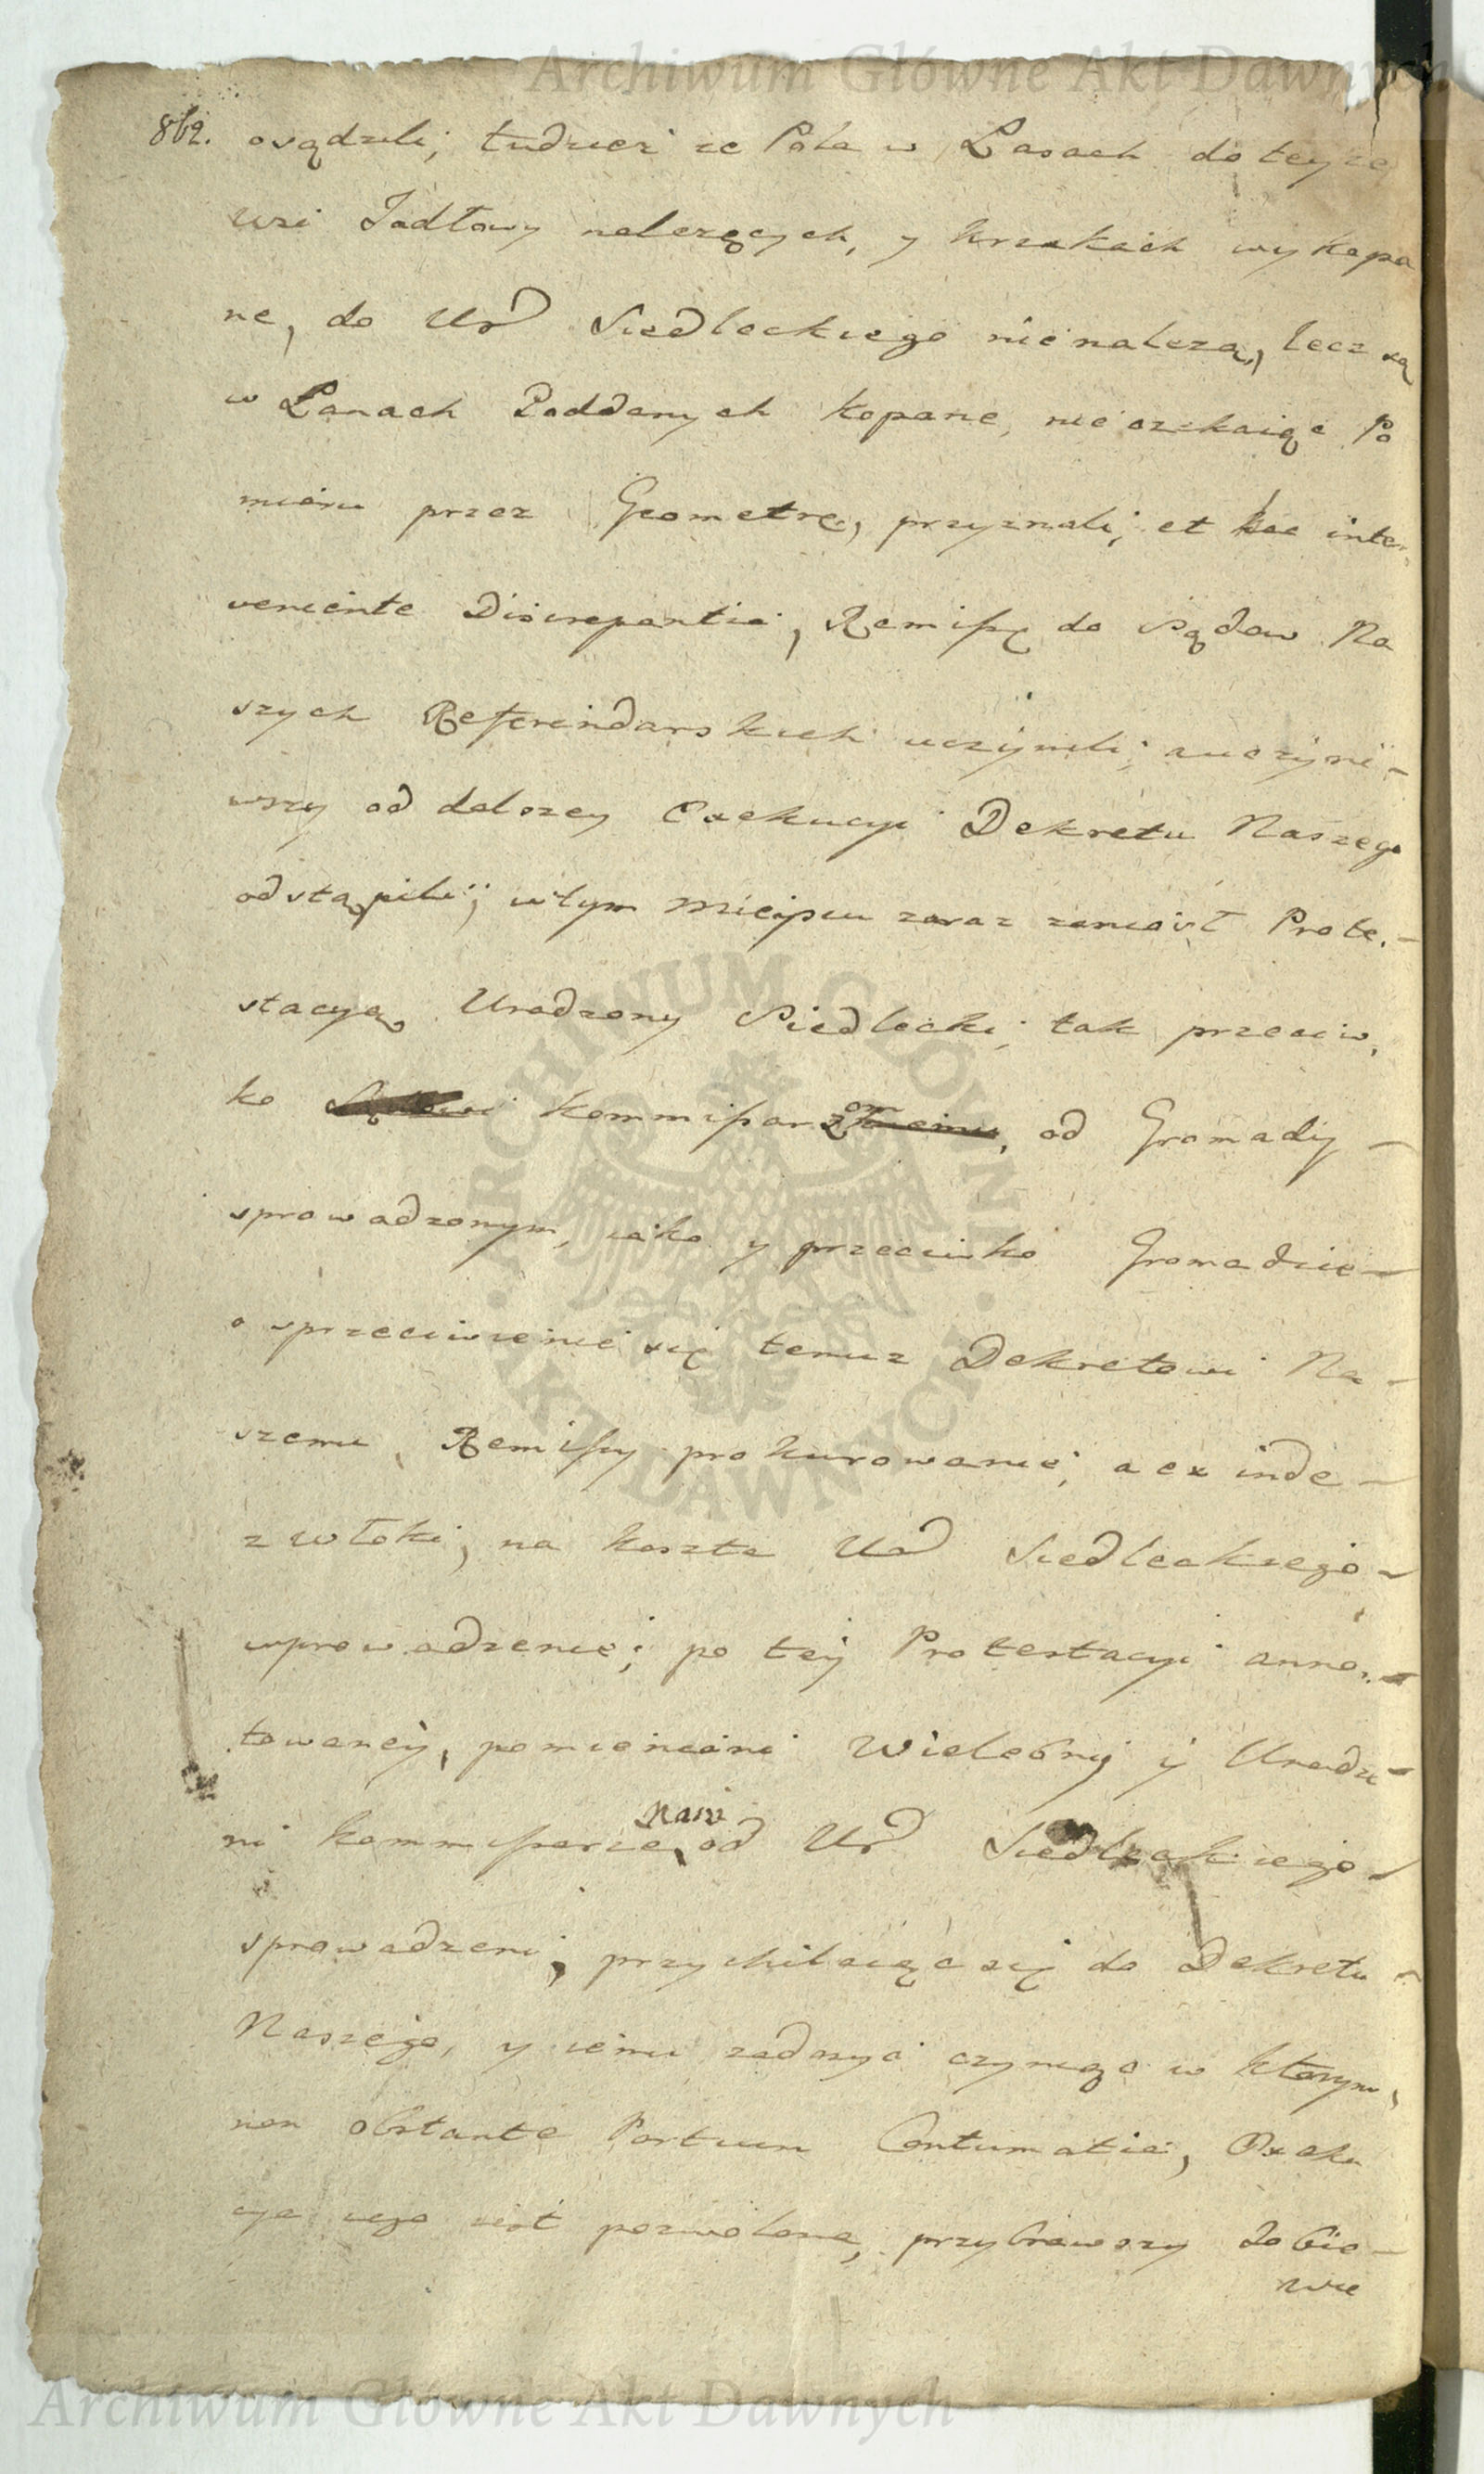 Archiwum Główne Akt Dawnych
862. osądzili; tudziez ze Pola w Lasach do teyze
wsi Jodłowy nalezących, y krzakach wykopa
ne, do Ur Siedleckiego nienalezą, lecz są
w Łanach Poddanych kopane, nieczekaiąc Po
miaru przez Geometrę, przyznali; et hac inter
veniente Discrepantia, Remissę do Sądow Na
szych Referendarskich uczynili; a uczyni-
wszy od dalszey Exekucyi Dekretu Naszego
odstąpili; w tym mieyscu zaraz zaniosł Prote-
stacyą Urodzony Siedlecki; tak przeciw
ko kommissarzom, od Gromady -
sprowadzonym, iako y przeciwko Gromadzie -
o sprzeciwienie się temuz Dekretowi Na -
szemu, Remissy prokurowanie, a ex inde -
zwłoki, na koszta Ur Siedleckiego -
wprowadzenie; po tey Protestacyi anno -
towaney, pomienieni Wielebny y Urodze -
ni kommissarze nasi od Ur Siedleckiego -
sprowadzeni, przychilaiąc się do Dekretu -
Naszego, y iemu zadosyc czyniąc w ktorym,
non obstante Partium Contumatia, Exeku
cya iego iest pozwolona, przybrawszy do sie -
wie
ARCHIWUM GŁÓWNE AKT DAWNYCH
Archiwum Główne Akt Dawnych